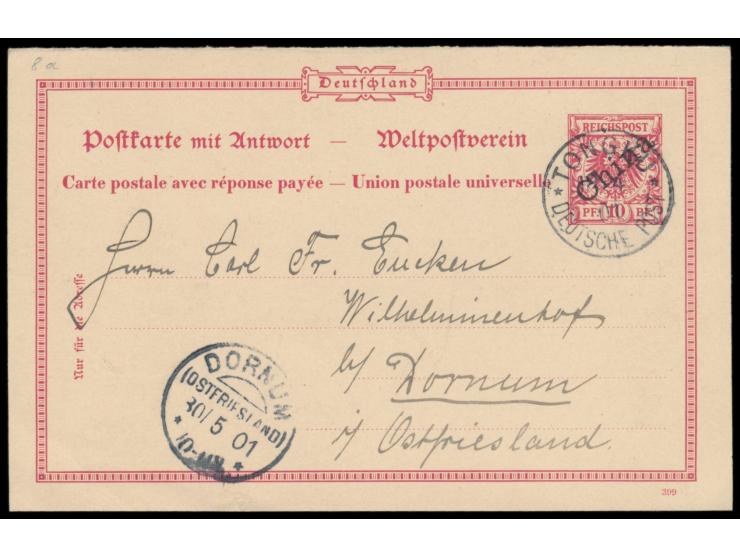 8 a
Deutschland
Postkarte mit Antwort — Weltpostverein
Carte postale avec réponse payée — Union postale universelle
REICHSPOST
China
PF 10 PF
TONGKU
DEUTSCHE POST
Herrn Carl Fr. Eucken
Wilhelminenhof
b/ Dornum
i/ Ostfriesland.
Nur für die Adresse
DORNUM
(OSTFRIESLAND)
30/5 01
399